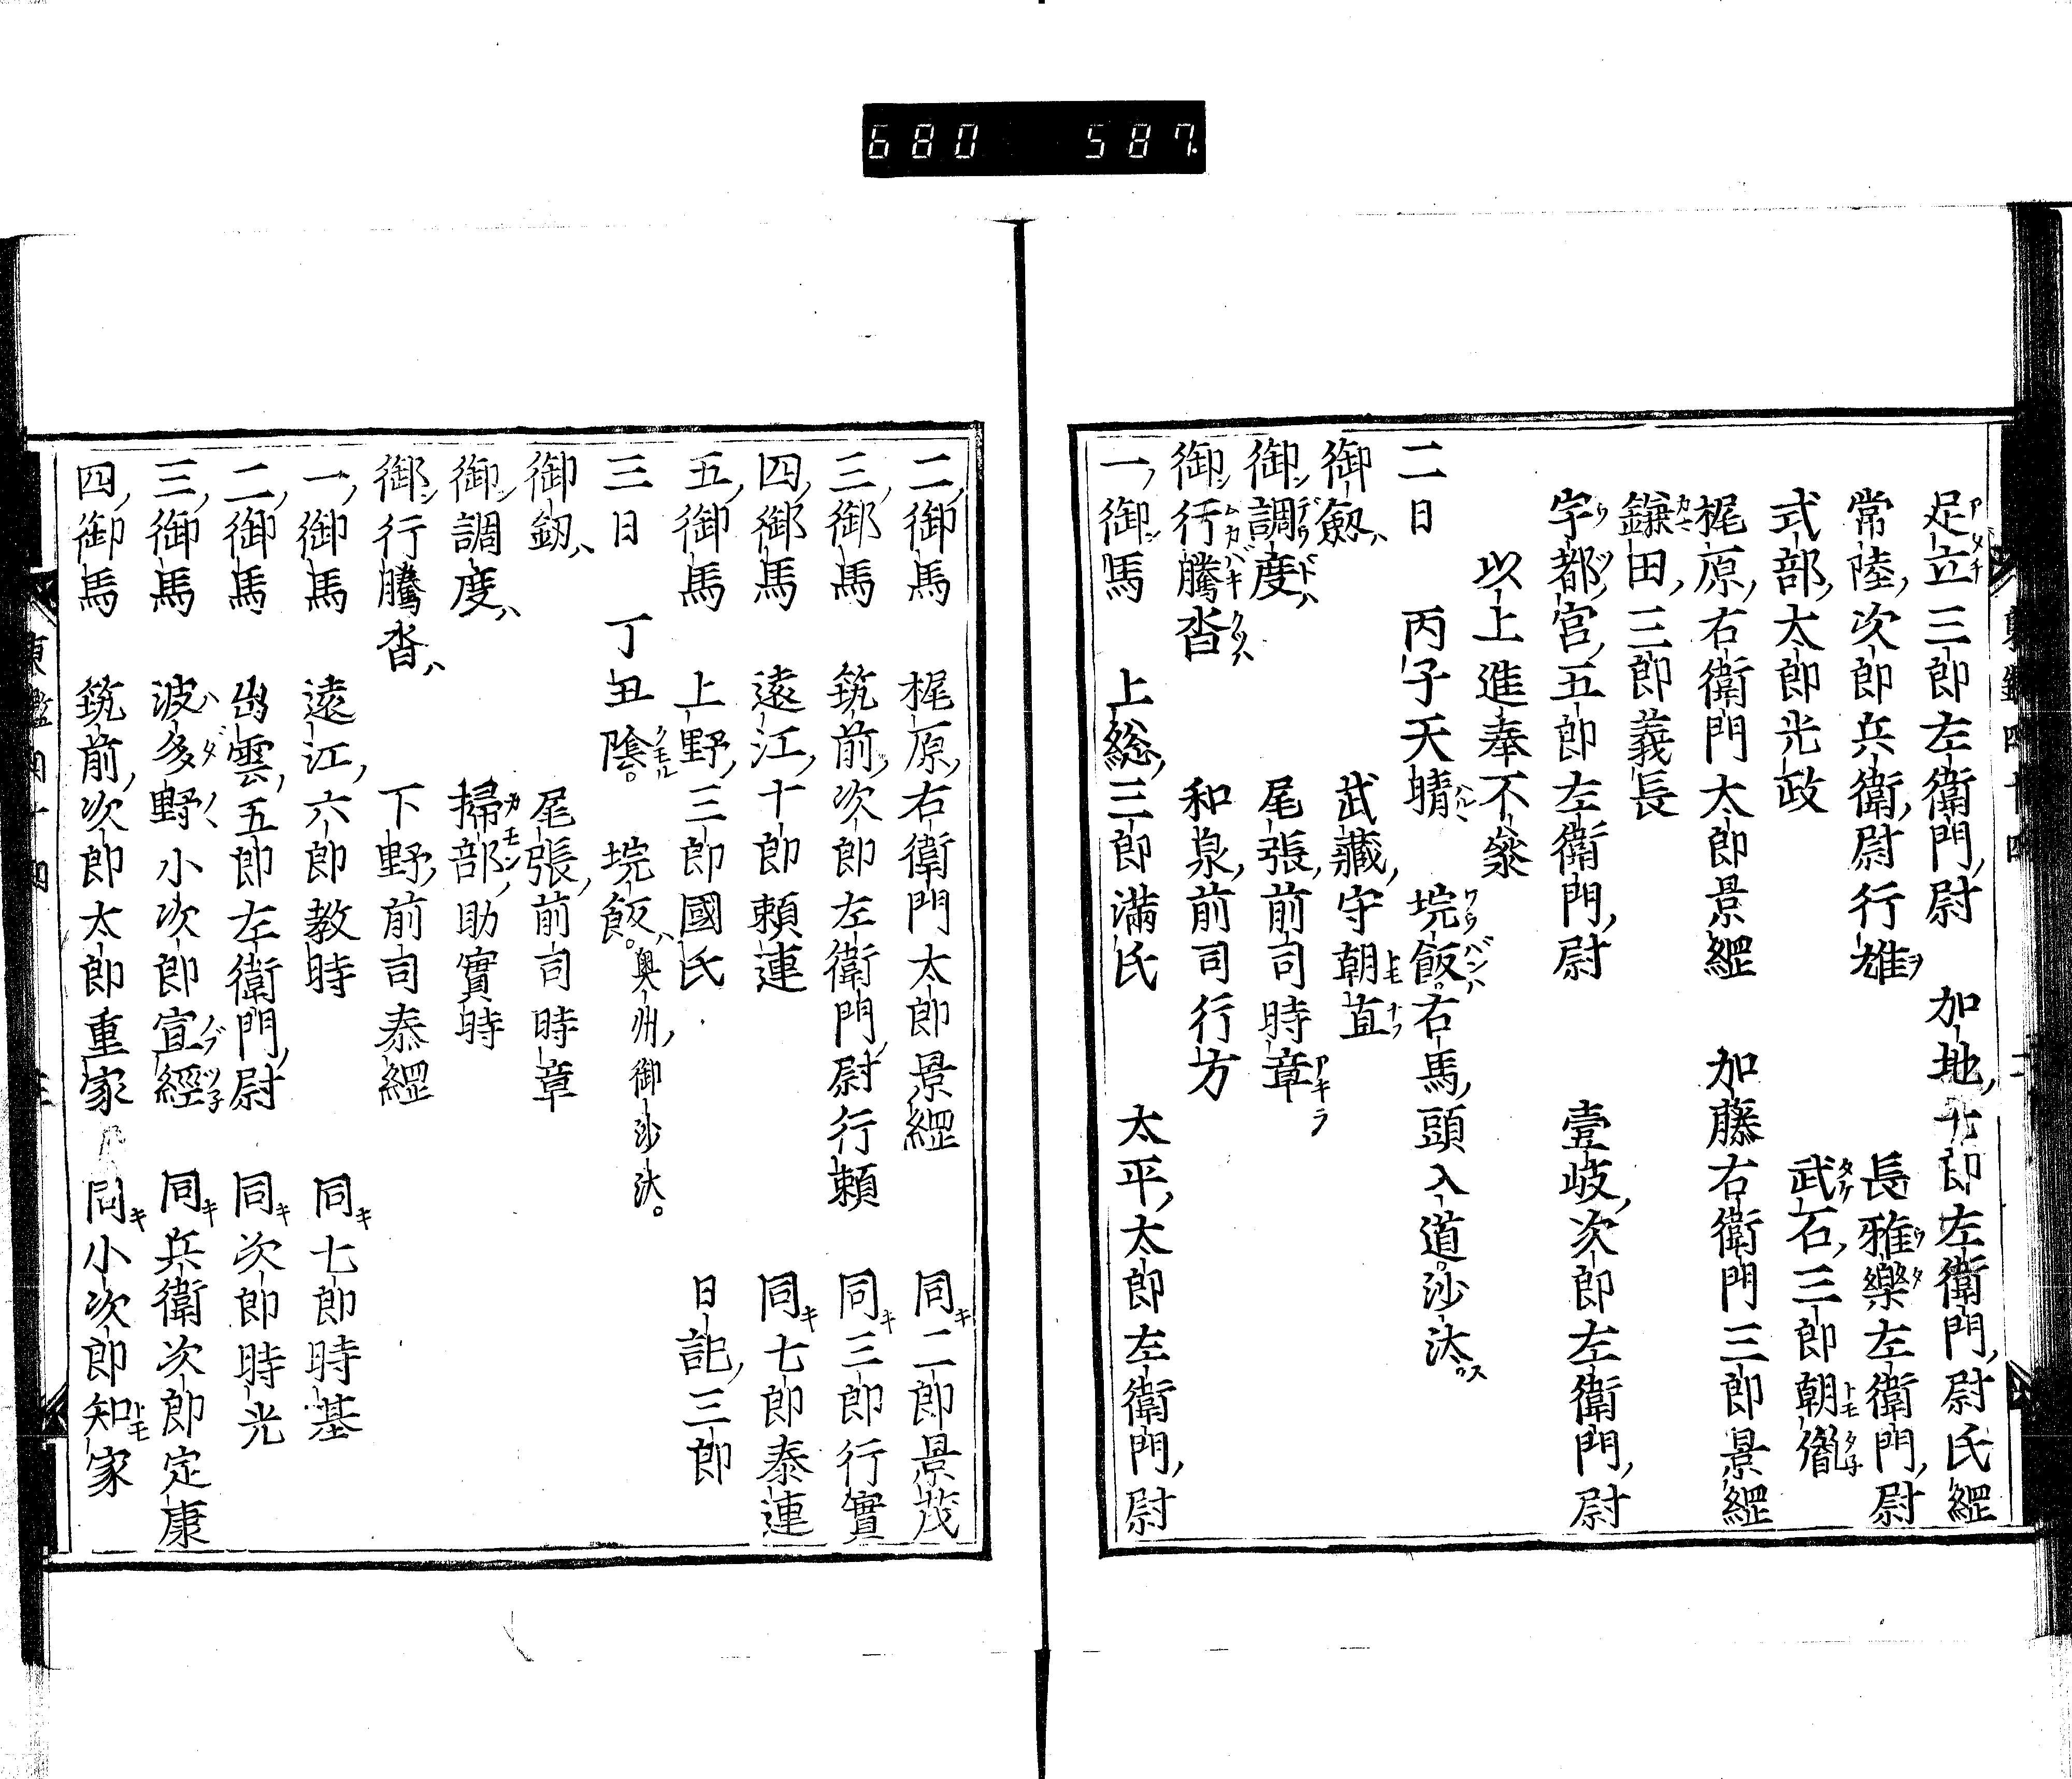 680 587
足立三郎左衛門尉 加地七郎左衛門尉氏經
常陸次郎兵衛尉行雄 長雅樂左衛門尉
式部太郎光政 武石三郎朝胤
梶原右衛門太郎景經 加藤右衛門三郎景經
鎌田三郎義長
宇都宮五郎左衛門尉 壹岐次郎左衛門尉
以上進奉不參
二日 丙子天晴 垸飯右馬頭入道沙汰
御劔 武藏守朝直
御調度 尾張前司時章
御行騰沓 和泉前司行方
一御馬 上総三郎滿氏 太平太郎左衛門尉
二御馬 梶原右衛門太郎景經 同二郎景茂
三御馬 筑前次郎左衛門尉行頼 同三郎行實
四御馬 遠江十郎頼連 同七郎泰連
五御馬 上野三郎國氏 日記三郎
三日 丁丑陰 垸飯奥州御沙汰
御釼 尾張前司時章
御調度 掃部助實時
御行騰沓 下野前司泰經
一御馬 遠江六郎教時 同七郎時基
二御馬 出雲五郎左衛門尉 同次郎時光
三御馬 波多野小次郎宣經 同兵衛次郎定康
四御馬 筑前次郎太郎重家 同小次郎知家